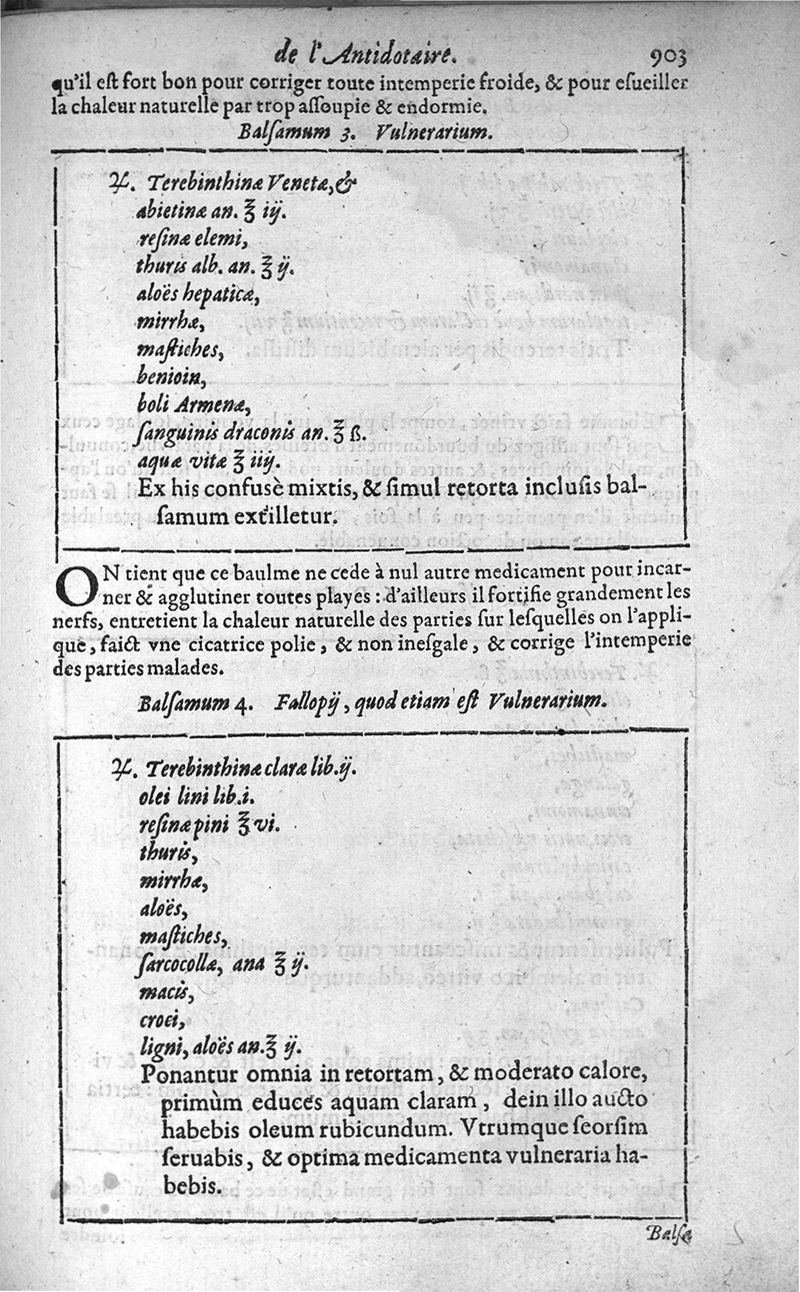 de l'Antidotaire. 903
qu'il eſt fort bon pour corriger toute intemperie froide, & pour eſueiller
la chaleur naturelle par trop aſſoupie & endormie.
Balſamum 3. Vulnerarium.
℞. Terebinthinæ Venetæ, &
abietinæ an. ℥ iij.
reſinæ elemi,
thuris alb. an. ℥ ij.
aloës hepaticæ,
mirrhæ,
maſtiches,
benioin,
boli Armenæ,
ſanguinis draconis an. ℥ ß.
aquæ vitæ ℥ iiij.
Ex his confusè mixtis, & ſimul retorta incluſis bal-
ſamum extilletur.
ON tient que ce baulme ne cede à nul autre medicament pour incar-
ner & agglutiner toutes playes : d'ailleurs il fortifie grandement les
nerfs, entretient la chaleur naturelle des parties ſur leſquelles on l'appli-
que, faict vne cicatrice polie, & non ineſgale, & corrige l'intemperie
des parties malades.
Balſamum 4. Fallopij, quod etiam eſt Vulnerarium.
℞. Terebinthinæ claræ lib.ij.
olei lini lib.i.
reſinæ pini ℥ vi.
thuris,
mirrhæ,
aloës,
maſtiches,
ſarcocollæ, ana ℥ ij.
macis,
croei,
ligni, aloës an. ℥ ij.
Ponantur omnia in retortam, & moderato calore,
primùm educes aquam claram, dein illo aucto
habebis oleum rubicundum. Vtrumque ſeorſim
ſeruabis, & optima medicamenta vulneraria ha-
bebis.
Balſa